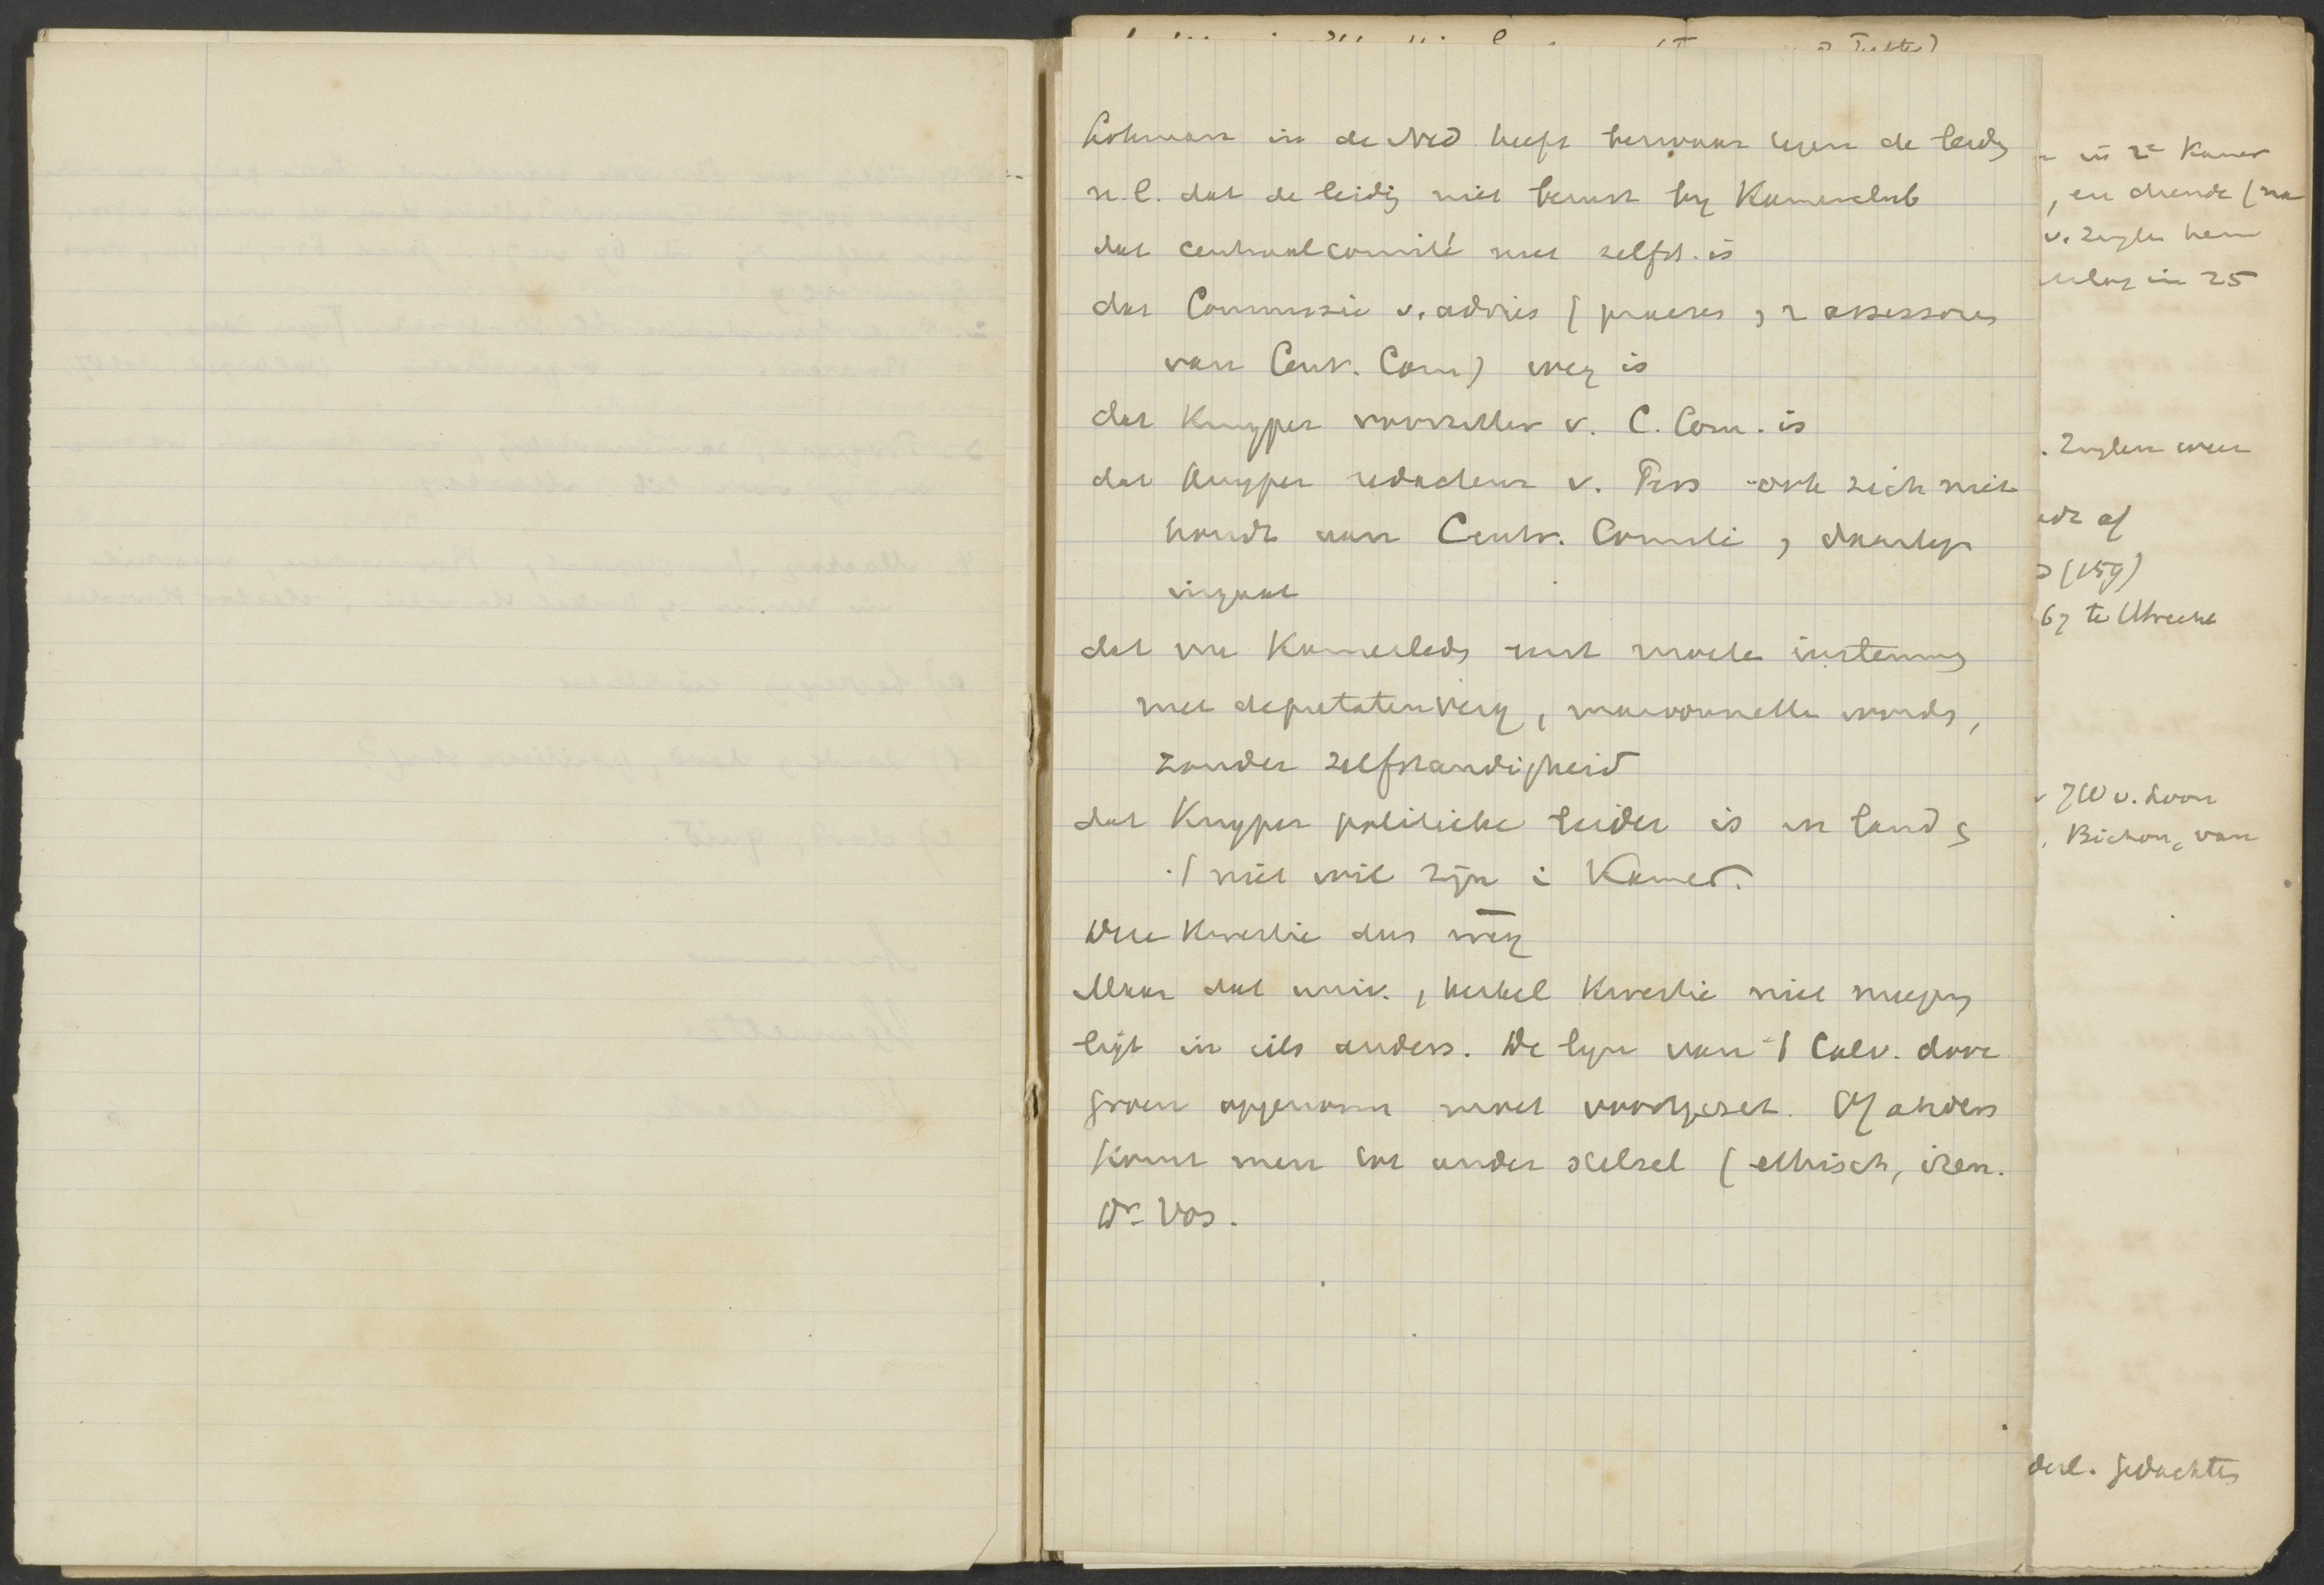 Lohman in de Ned heeft bezwaar tegen de leidg
n.l. dat de leidig niet berust by Kamerclub
dat centraalcomité niet zelfst. is
dat Commissie v. advies (praeses, 2 assessores
van Centr. Com) weg is
dat Kuyper voorzitter v. C. Com. is
dat Kuyper redacteur v. ook zich niet
houdt aan Centr. Comité, daartegen
ingaat
dat Kamerleds met instemmg
met deputatenverg, worden,
zonder zelfstandigheid
dat Kuyper politieke leider is in land &
niet wil zijn i Kamer.
Deze Kwestie dus weg
Maar dat univ., Kwestie niet
ligt in iets anders. De lyn van 't Calv. door
Groen opgenomen moet voortgezet. Of anders
komt men tot ander stelsel (ethisch, iren.
Dr Vos.
in 2e Kamer
, en drende (na
v. Zuylen hem
in 25
. Zuylen weer
(159)
67 te Utrecht
JW v. Loon
, Bichon, van
derl. gedachtes